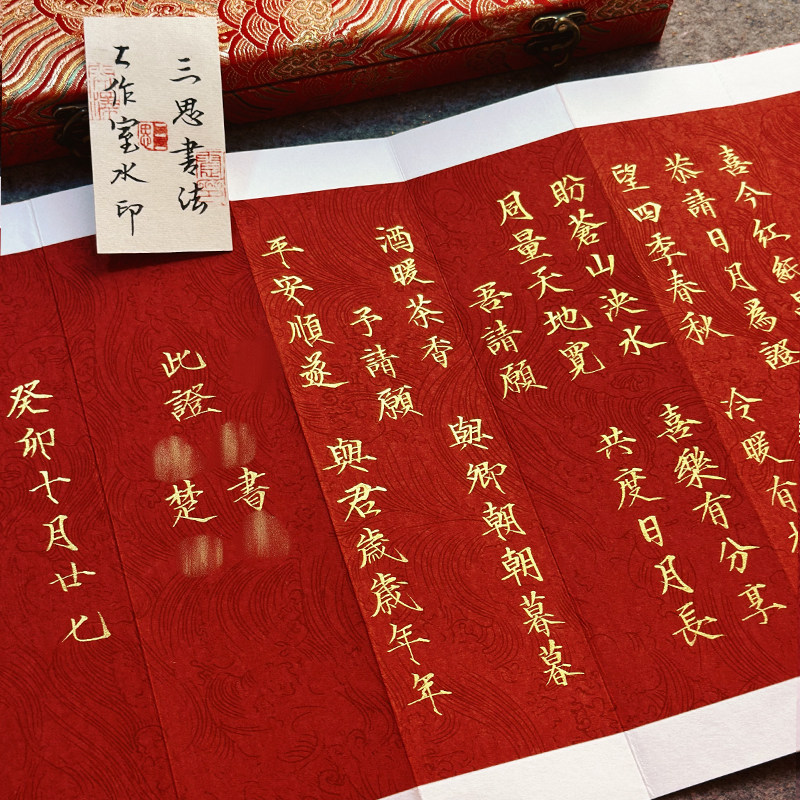 喜今紅紙
恭請日月為證
望四季春秋 冷暖有
盼蒼山泱水 喜樂有分享
同量天地寬 共度日月長
吾請願
酒暖茶香 與卿朝朝暮暮
予請願
平安順遂 與君歲歲年年
書
此證 楚
癸卯十月廿七
三思書法
工作室水印